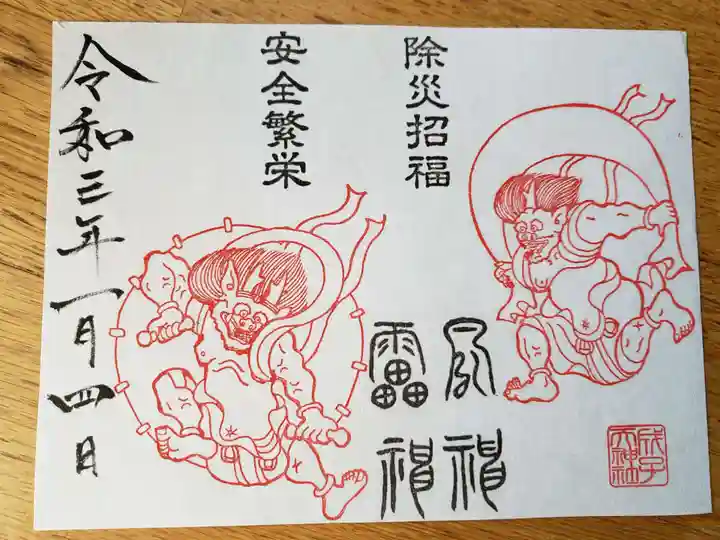 除災招福
安全繁栄
風神
雷神
令和三年一月四日
成子
天神